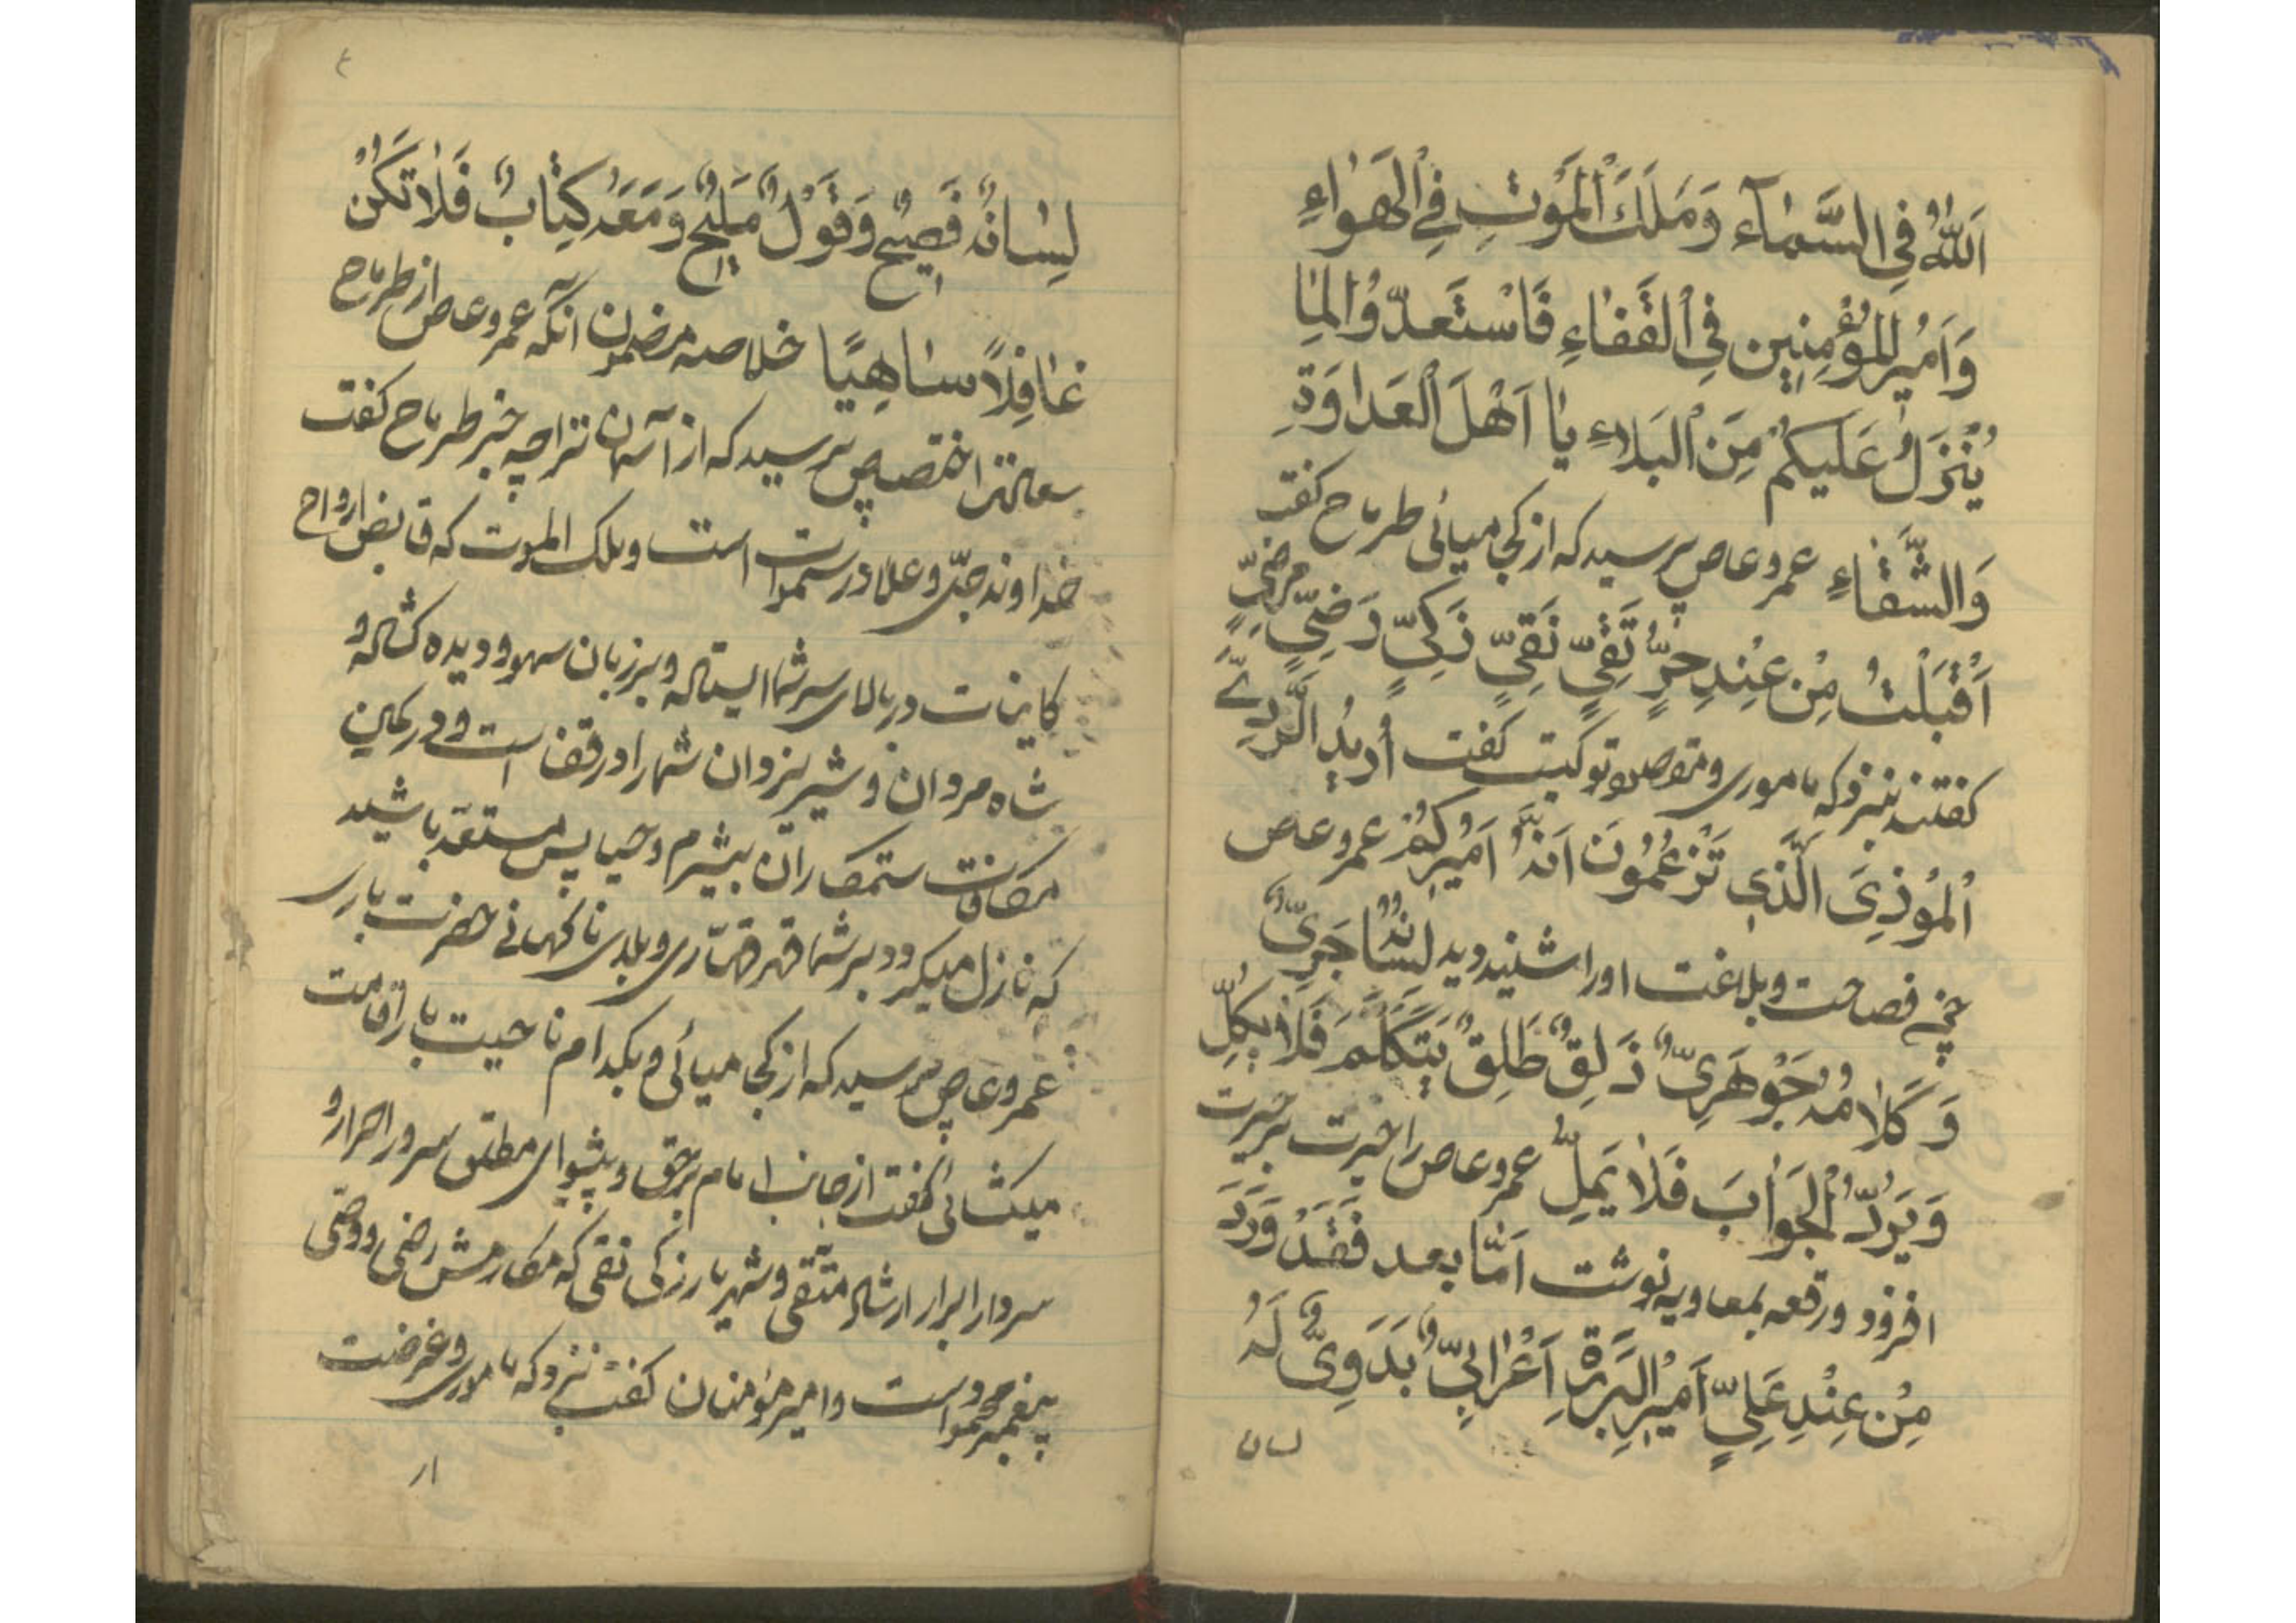 اَللّٰهُ فِی السَّمٰآءِ وَمَلَكُ الْمَوْتِ فِی الْهَوٰاءِ
وَاَمُیرُالْمُؤْمِنِین فِی الْقَفٰاءِ فَاسْتَعِدّوُا لِمٰا
یُنْزَلُ عَلَیکُمْ مِنَ الْبَلاءِ یٰا اَهْلَ الْعَداوَةِ
وَالشَّقٰاءِ عمروعاص پرسید که از کجا میائی طرماح کفت
اَقْبَلْتُ مِنْ عِنْدِ حُرٍّ تَقِیٍّ نَقِیٍّ زَکِیٍّ رَضِیٍّ مرضِیٍّ
کفتند بنزد که ماموری ومقصود تو کیست کفت اُریدُ الرَّدِیَّ
اْلمُوْذِیَ الَّذی تَزْعُمُونَ اَنَّهُ اَمیٖرُکُمْ عمروعاص
فصاحت وبلاغت اورا شنید ودید لِسٰانُهُ جَرِیٌّ
وَکَلاٰمُهُ جَوْهَرِیٌّ ذَلِقٌ طَلِقٌ یَتَکَلَّمُ فَلاٰ یَکِلُّ
وَیَرُدُّ الْجَوٰابَ فَلاٰ یَمِلُّ عمروعاص را حیرت برحیرت
افزود ورقعه بمعاویه نوشت اَمّٰا بعد فَقَدْ وَرَدَ
مِنْ عِنْدِ عَلِیٍّ اَمیرِ الْبَرَرَةِ اَعْرٰابِیٌّ بَدَوِیٌّ لَهُ
لسان
٤
لِسٰانٌ فَصیٖحٌ وَقَوْلٌ مَلیٖحٌ وَمَعَهُ کِتٰابٌ فَلاٰ تَکُنْ
غٰافِلاً سٰاهِیًا خلاصه مضمون آنکه عمروعاص از طرماح
پرسید که از آسمان ترا چه خبر طرماح کفت
خداوند جلّ وعلا در سموات است وملك الموت که قابض ارواح
کاینات در بالای سر شما ایستاده وبر زبان سهو ودیده کشاده و
شاه مردان وشیر یزدان شما را در قفا است ودر کمین
مکافات ستمکاران بیشرم وحیا پس مستعدّ باشید
که نازل میکردد بر شما قهر قهّاری وبلای ناکهانی حضرت باری
عمروعاص پرسید که از کجا میائی وبکدام ناحیت بار اقامت
میکشائی کفت از جانب امام برحق وپیشوای مطلق سرور احرار و
سردار ابرار ارشاد متّقی وشهریار زکی نقی که مکارمش رضی ووصّی
پیغمبر است وامیر مؤمنان کفت بنزد که ماموری وغرضت